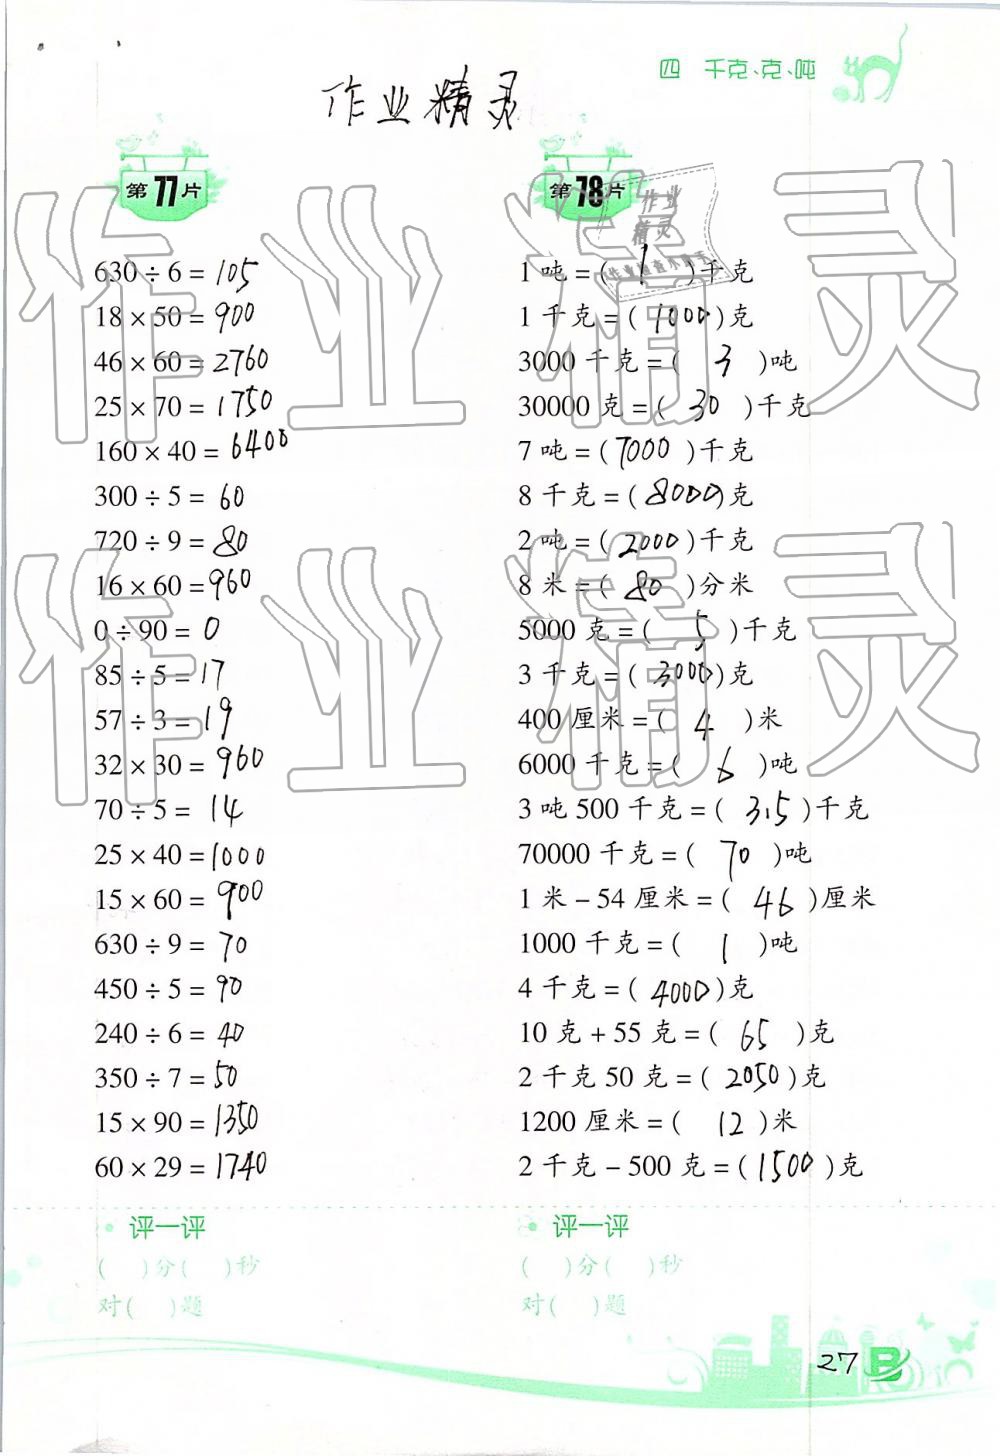 四 千克、克、吨
作业精灵
第77片
630÷6=105
18×50=900
46×60=2760
25×70=1750
160×40=6400
300÷5=60
720÷9=80
16×60=960
0÷90=0
85÷5=17
57÷3=19
32×30=960
70÷5=14
25×40=1000
15×60=900
630÷9=70
450÷5=90
240÷6=40
350÷7=50
15×90=1350
60×29=1740
评一评
( )分( )秒
对( )题
第78片
1吨=(1)千克
1千克=(1000)克
3000千克=(3)吨
30000克=(30)千克
7吨=(7000)千克
8千克=(8000)克
2吨=(2000)千克
8米=(80)分米
5000克=(5)千克
3千克=(3000)克
400厘米=(4)米
6000千克=(6)吨
3吨500千克=(3.5)千克
70000千克=(70)吨
1米-54厘米=(46)厘米
1000千克=(1)吨
4千克=(4000)克
10克+55克=(65)克
2千克50克=(2050)克
1200厘米=(12)米
2千克-500克=(1500)克
评一评
( )分( )秒
对( )题
27
作业精灵
作业精灵
作业
精灵